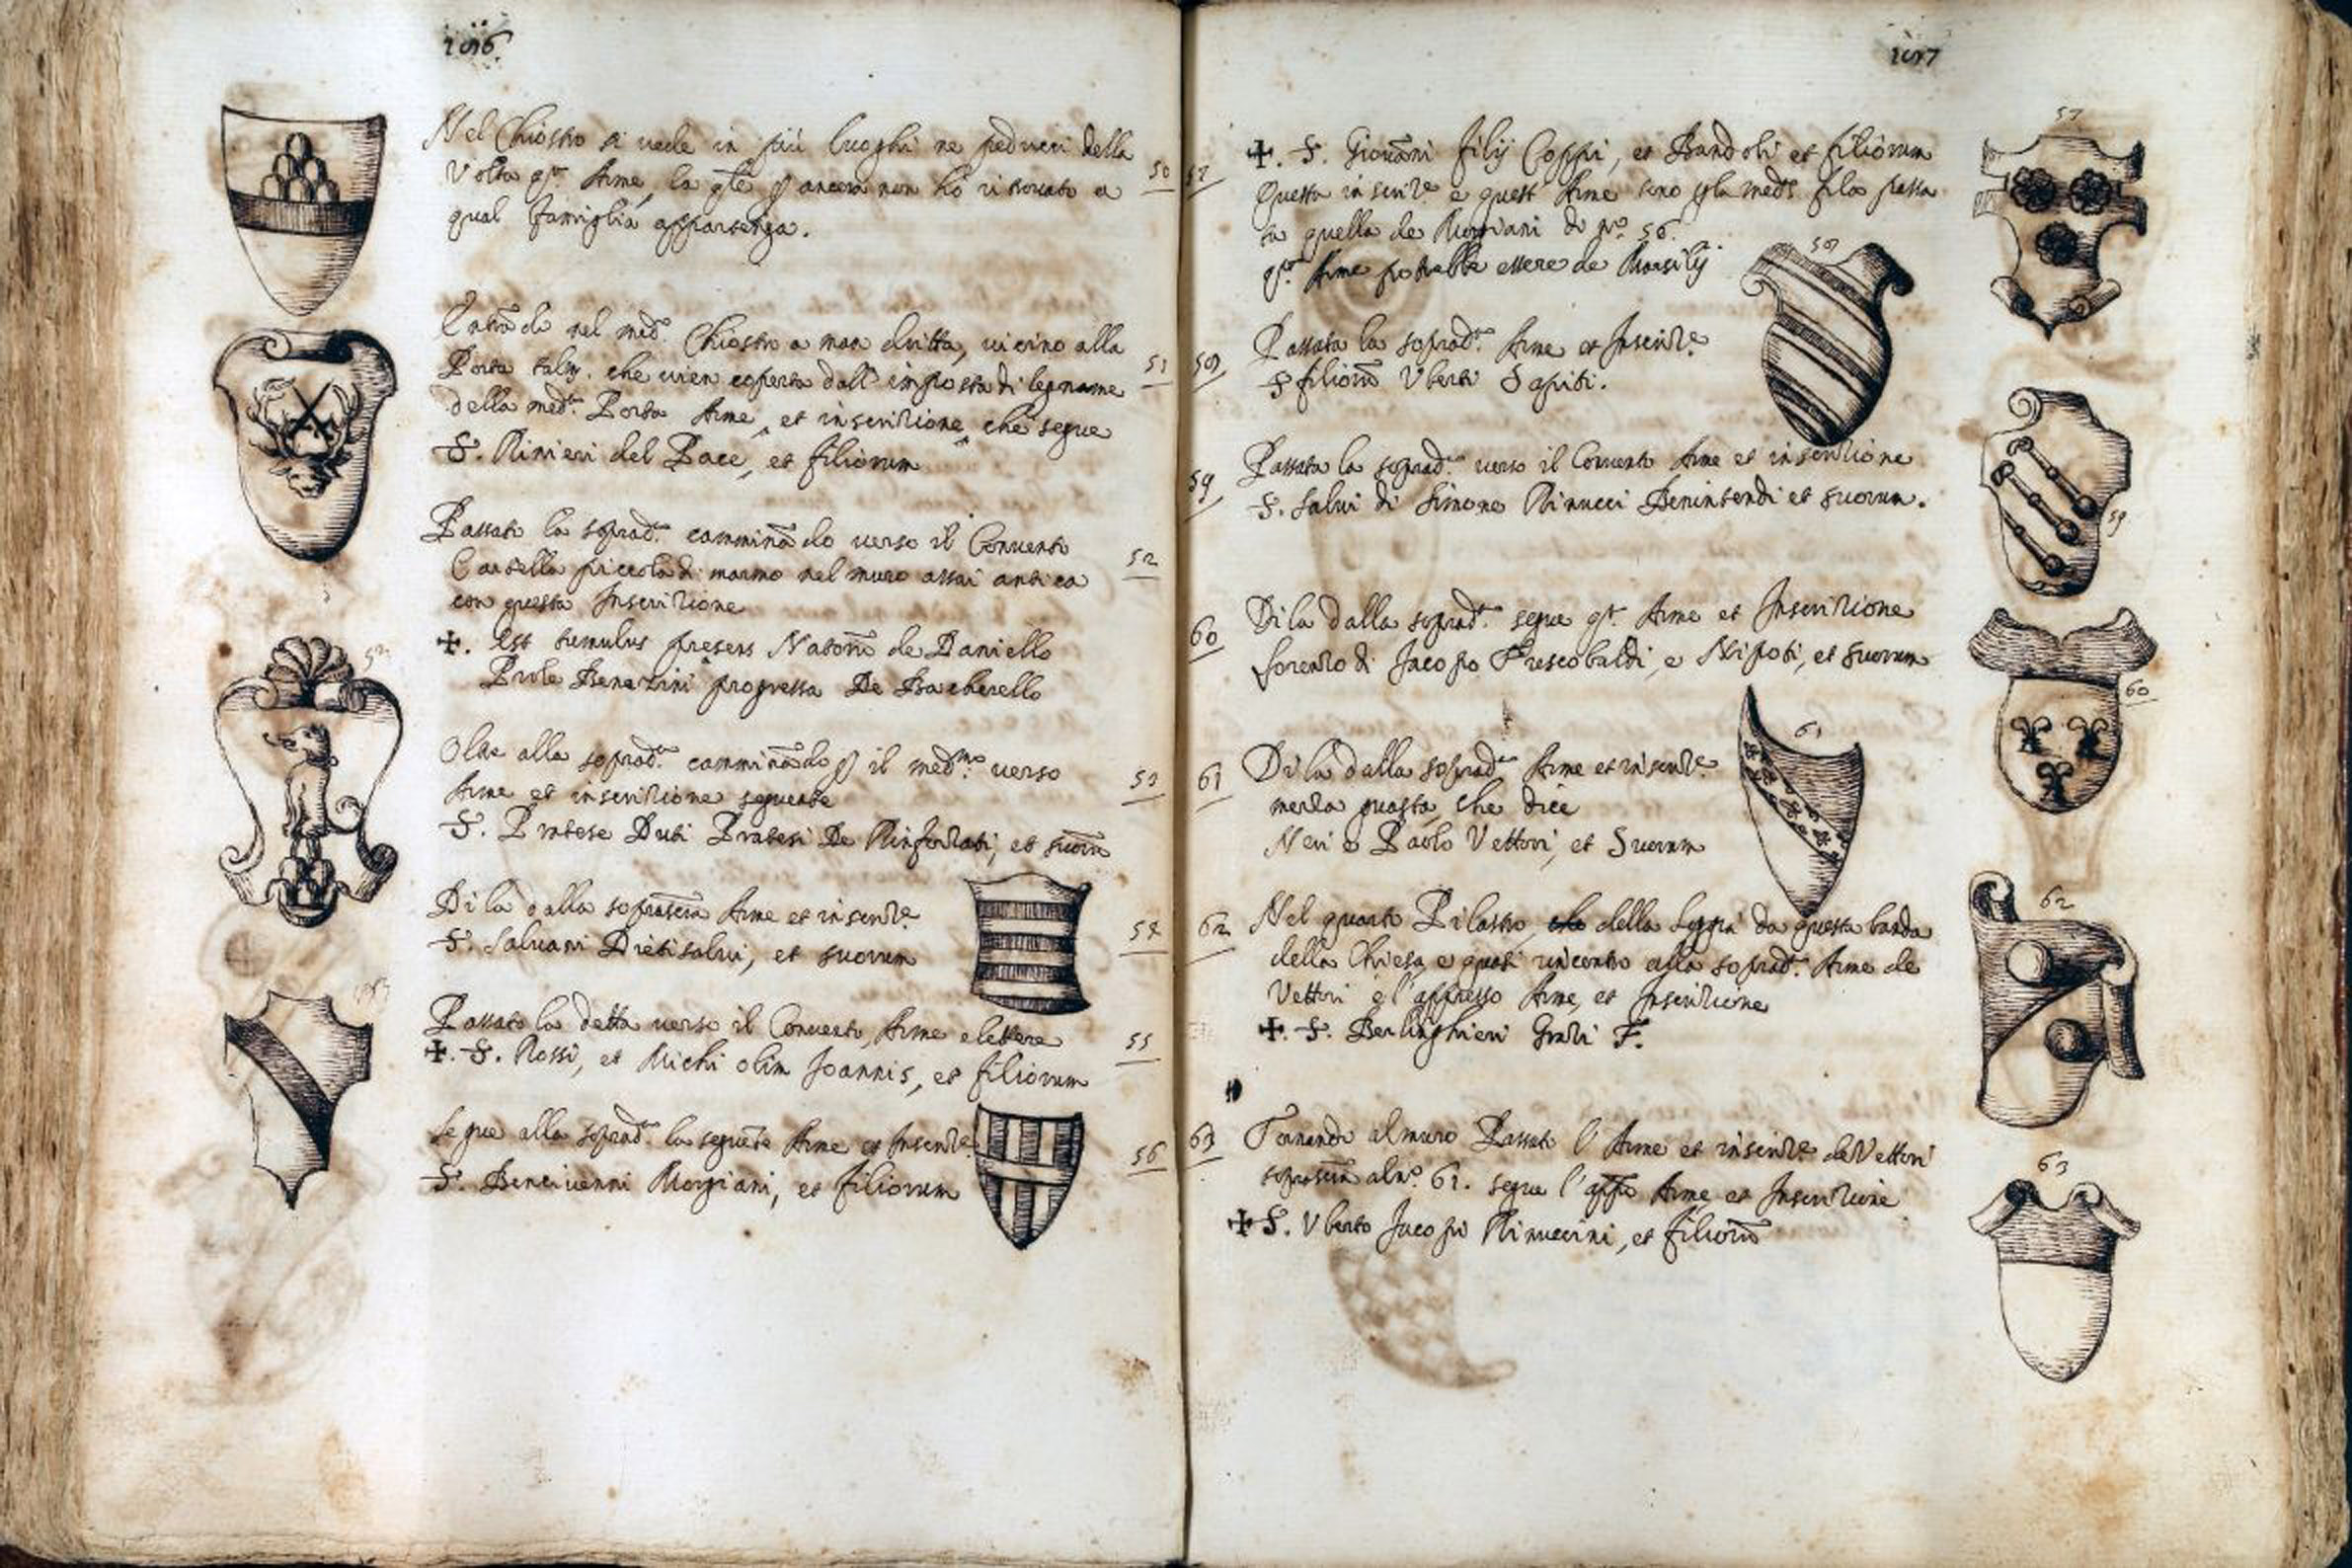 1056
Nel Chiostro si vede in più luoghi ne peducci della
Volta q.ta Arme, la q̃le p ancora non ho ritrovato a
qual famiglia appartenga.
50
Entrãdo nel med.o Chiostro a man dritta, vicino alla
Porta che vien coperta dall' imposta di legname
della med.a Porta Arme, et inscrizione, che segue
S. Rinieri del Pace, et filiorum
51
Passato la soprad.ta camminãdo verso il Convento
Cartella piccola di marmo nel muro assai antica
con questa Inscrizione
✠. Est tumulus presens Natoru de Daniello
Prole Benazini progressa De Bacherello
52
Oltre alla soprad.ta camminãdo p il med.mo verso
Arme et inscrizione seguente
S. Pratese Duti Pratesi De Rinforzati, et suoru
53
Di la dalla soprascrã Arme et inscriz.e
S. Salvani Dietisalvi, et suorum
54
Passato la detta verso il Convento, Arme e lettere
✠. S. Rossi, et Michi olim Joannis, et filiorum
55
Segue alla soprad.ta la seguẽte Arme et Inscriz.e
S. Bencivenni Morgiani, et filiorum
56
52
1057
57
✠. S. Giovãni filij Coppi, et Bandoli et filiorum
Questa inscriz.e e quest' Arme sono nella med.a fila passa
ta quella de Morgiani di n.o 56.
q.ta Arme potrebbe essere de Marsilij
58
Passata la soprad.ta Arme et Inscriz.e
S filioru Uberti Sapiti.
59
Passata la soprad.ta verso il Convento Arme et inscrizione
S. Salvi di Simone Rinucci Benintendi et suorum.
60
Di la dalla soprad.ta segue q.ta Arme et Inscrizione
Lorenzo di Jacopo Frescobaldi, e Nipoti, et suorum
61
Di la dalla soprad.ta Arme et inscriz.e
mezza guasta, che dice
Neri e Paolo Vettori, et Suorum
62
Nel quarto Pilastro della loggia da questa banda
della Chiesa, e quasi rincontro alla soprad.ta Arme de
Vettori è l'appresso Arme, et Inscrizione
✠. S. Berlinghieri Grazi F.
63
Tornando al muro Passato l'Arme et inscriz.e de Vettori
soprascrã al n.o 61. segue l'app.o Arme, et Inscrizione
✠ S. Uberto Jacopi Rinuccini, et filioru
57
58
59
60
61
62
63